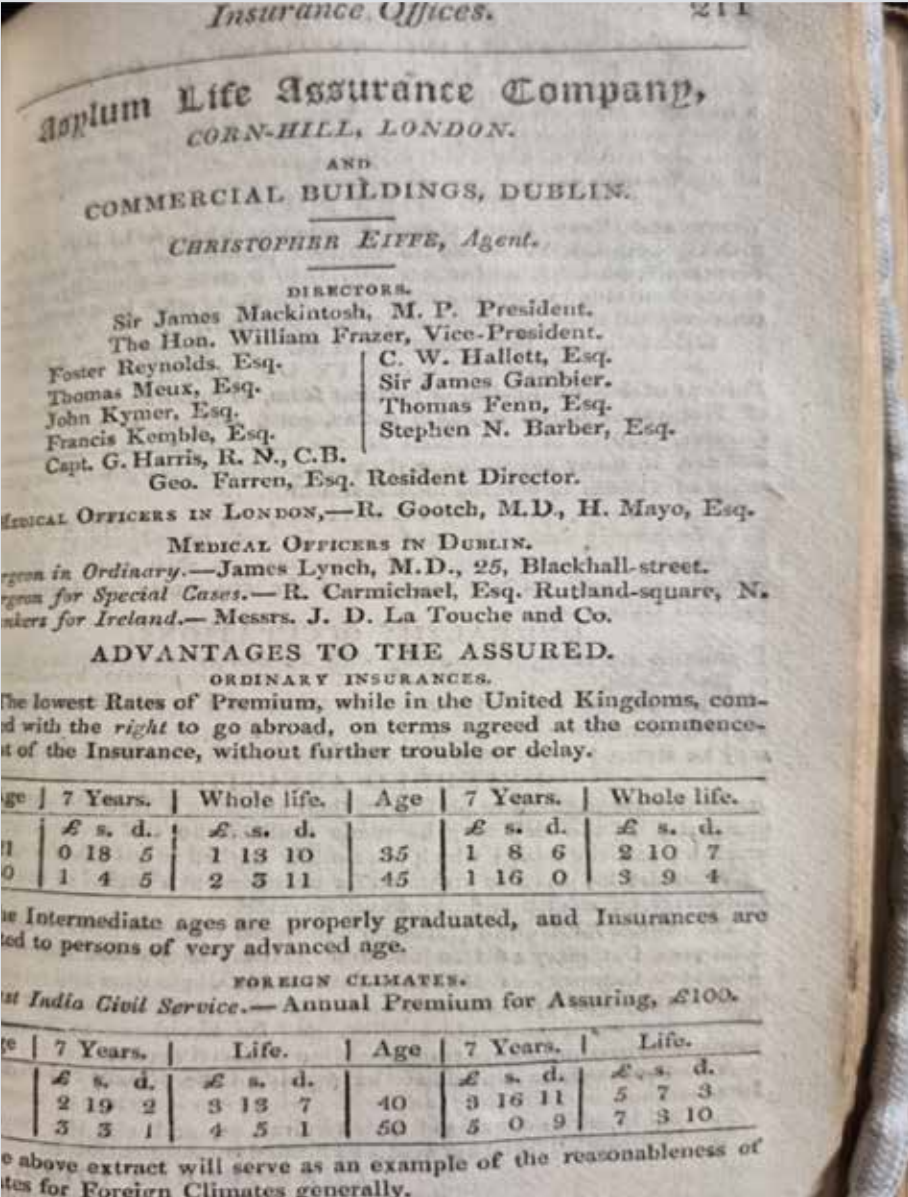 Insurance Offices. 211
Asylum Life Assurance Company,
CORN-HILL, LONDON.
AND
COMMERCIAL BUILDINGS, DUBLIN.
CHRISTOPHER EIFFE, Agent.
DIRECTORS.
Sir James Mackintosh, M. P. President.
The Hon. William Frazer, Vice-President.
Foster Reynolds. Esq.
Thomas Meux, Esq.
John Kymer, Esq.
Francis Kemble, Esq.
Capt. G. Harris, R. N., C.B.
C. W. Hallett, Esq.
Sir James Gambier.
Thomas Fenn, Esq.
Stephen N. Barber, Esq.
Geo. Farren, Esq. Resident Director.
MEDICAL OFFICERS IN LONDON,—R. Gooch, M.D., H. Mayo, Esq.
MEDICAL OFFICERS IN DUBLIN.
in Ordinary.—James Lynch, M.D., 25, Blackhall-street.
for Special Cases.—R. Carmichael, Esq. Rutland-square, N.
for Ireland.—Messrs. J. D. La Touche and Co.
ADVANTAGES TO THE ASSURED.
ORDINARY INSURANCES.
The lowest Rates of Premium, while in the United Kingdoms, com-
with the right to go abroad, on terms agreed at the commence-
of the Insurance, without further trouble or delay.
7 Years. | Whole life. | Age | 7 Years. | Whole life.
£ s. d. | £ s. d. | £ s. d. | £ s. d.
0 18 5 | 1 13 10 | 35 | 1 8 6 | 2 10 7
1 4 5 | 2 3 11 | 45 | 1 16 0 | 3 9 4
Intermediate ages are properly graduated, and Insurances are
to persons of very advanced age.
FOREIGN CLIMATES.
India Civil Service.—Annual Premium for Assuring, £100.
7 Years. | Life. | Age | 7 Years. | Life.
£ s. d. | £ s. d. | £ s. d. | £ s. d.
2 19 2 | 3 13 7 | 40 | 3 16 11 | 5 7 3
3 3 1 | 4 5 1 | 50 | 5 0 9 | 7 3 10
above extract will serve as an example of the reasonableness of
for Foreign Climates generally.